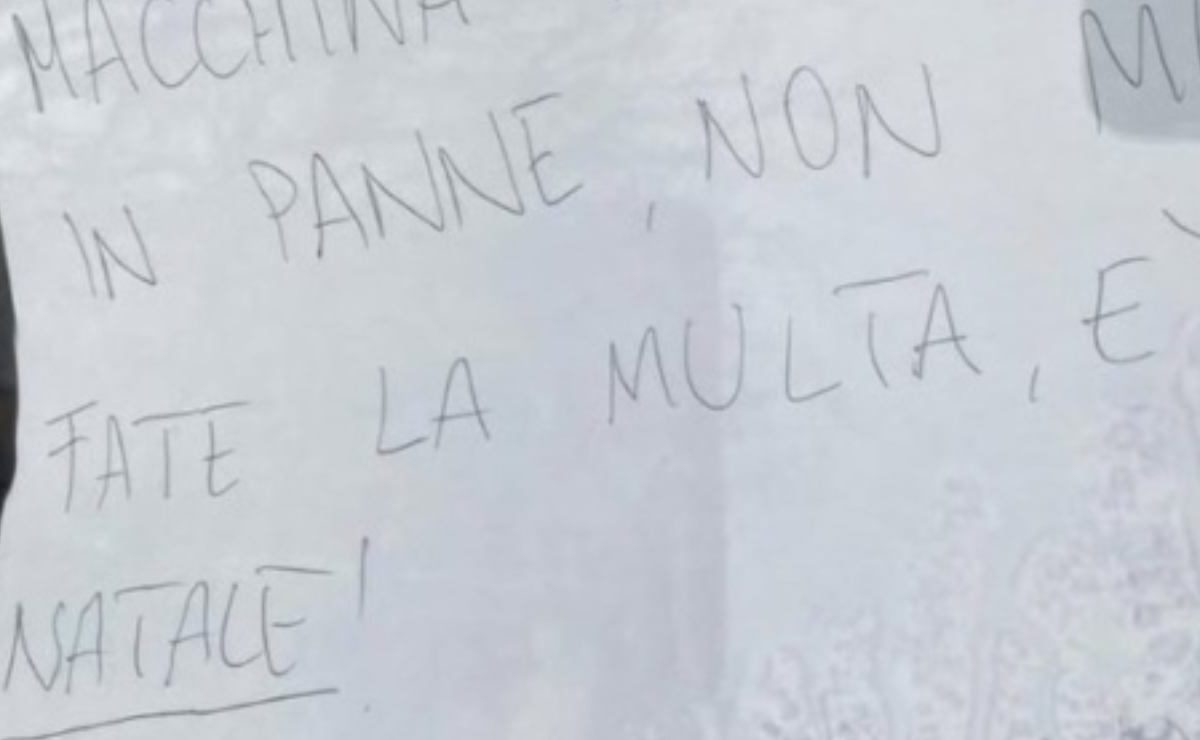 MACCHINA
IN PANNE, NON M
FATE LA MULTA, È
NATALE!